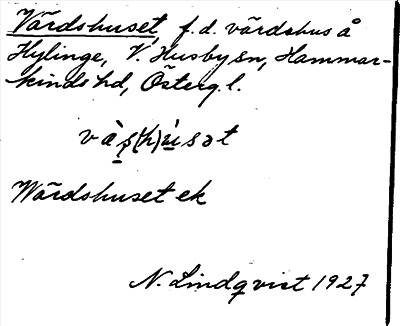 Värdshuset, f.d. värdshus å
Hylinge, V. Husby sn, Hammar-
kinds hd, Österg. l.
Wärdshuset ek
N. Lindqvist 1927